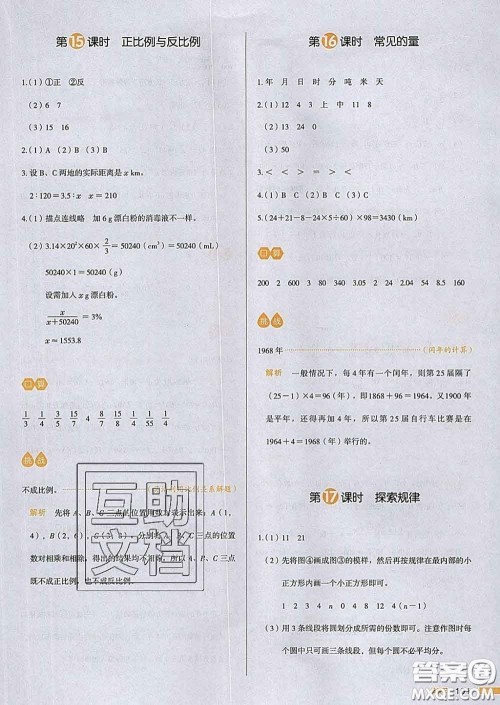 第15课时 正比例与反比例
1.(1)①正 ②反
(2)6 7
(3)15 16
2.(1)A (2)B (3)B
3.设B、C两地的实际距离是x km。
2∶120=3.5∶x x=210
4.(1)描点连线略 加6g漂白粉的消毒液不一样。
(2)3.14×20²×60×2/3=50240(cm³)=50240(mL)
50240×1=50240(g)
设需加入x g漂白粉。
x/(x+50240)=3%
x≈1553.8
口算
挑战
不成比例。
解析 先将A、B、C三点的位置用数对表示出来:A(1,
4),B(2,6),C(3,8),分别将A、B、C三点的位置
数对相乘和相除,得出的结果均不相等,所以A、B、C三点
既不成正比例,也不成反比例。
第16课时 常见的量
1.年 月 日 时 分 吨 米 天
2.(1)12 4 3 上 中 11 8
(3)50
3.< < = > > <
4.(1)B (2)B (3)C (4)B
5.(24+21-8-24×5÷60)×98=3430(km)
口算
200 2 600 3 80 340 3.045 24 2.04 54 8.5 160
挑战
1968年(闰年的计算)
解析 一般情况下,每4年有一个闰年,所以第25届隔了
(25-1)×4=96(年),即1868+96=1964,又1900年
是平年,还得再加4年,所以第25届自行车比赛是在
1964+4=1968(年)举行的。
第17课时 探索规律
1.(1)11 21
(2)先将图④画成图③的模样,然后再按规律在最内部的小
正方形内画一个小正方形即可。
1 2 3 4 n 0 4 8 12 4(n-1)
(3)用3条线段将圆划分成所需的份数即可。注意作图时每
个图中只可画三条线段,但圆不必平均分。
互助
文档
答案圈
MXQE.COM